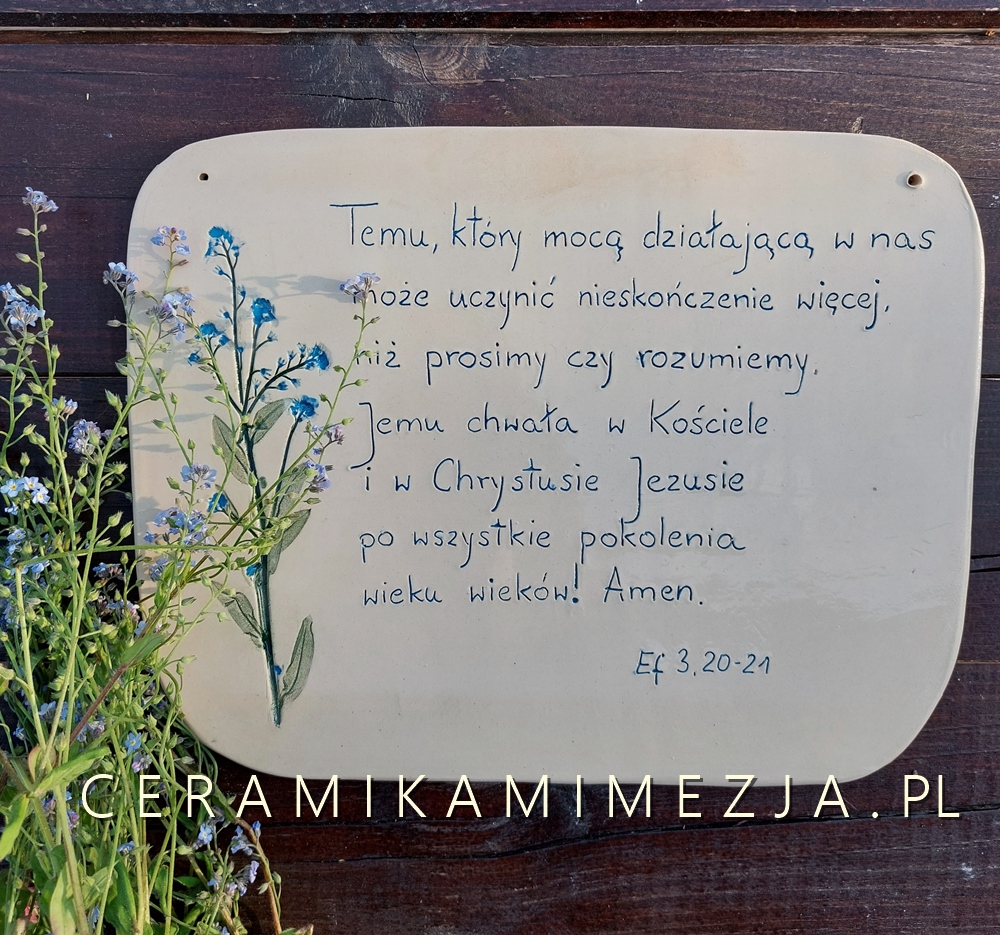 Temu, który mocą działającą w nas
może uczynić nieskończenie więcej,
niż prosimy czy rozumiemy,
Jemu chwała w Kościele
i w Chrystusie Jezusie
po wszystkie pokolenia
wieku wieków! Amen.
Ef 3,20-21
CERAMIKAMIMEZJA.PL